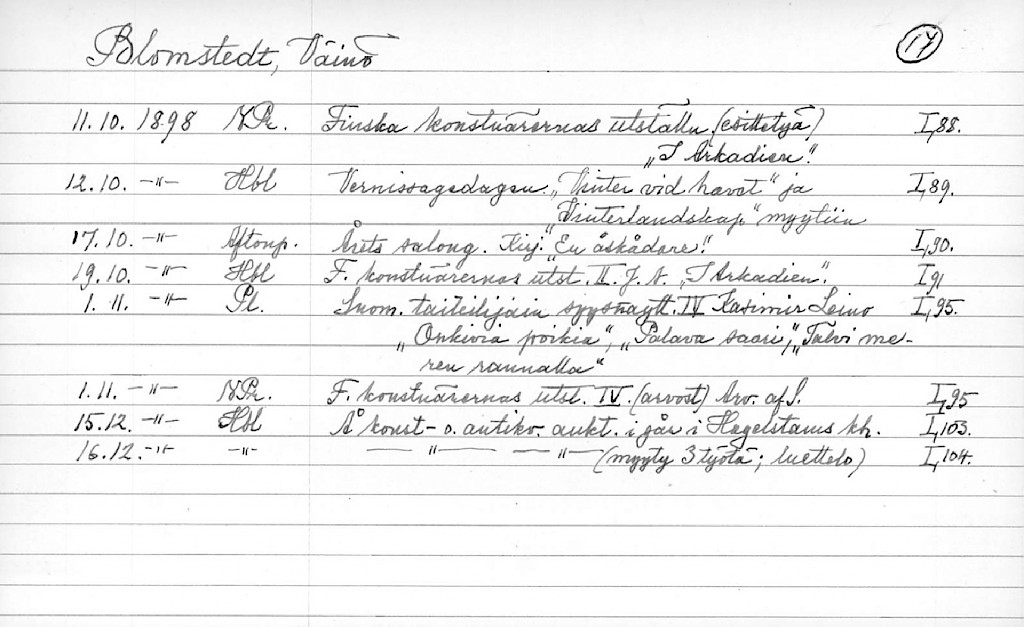 Blomstedt, Väinö 17
11.10. 1898 N.Pr. Finska konstnärernas utställn. (esittetyä) I,88.
"I Arkadien".
12.10. -"- Hbl Vernissagedagen. "Vinter vid havet" ja I,89.
"Vinterlandskap" myytiin
17.10. -"- Aftonp. Årets salong. Kirj. "En åskådare". I,90.
19.10. -"- Hbl F. konstnärernas utst. II. J.A. "I Arkadien". I,91
1.11. -"- Pl. Suom. taiteilijain syysnäytt. IV Kasimir Leino I,95.
"Onkivia poikia", "Palava saari", "Talvi me-
ren rannalla"
1.11. -"- N.Pr. F. konstnärernas utst. IV. (arvost) Arv. af S. I,95
15.12. -"- Hbl Å konst- o. antikv. aukt. i går i Hagelstams kh. I,103.
16.12. -"- -"- -"- -"- (myyty 3 työtä; luettelo) I,104.